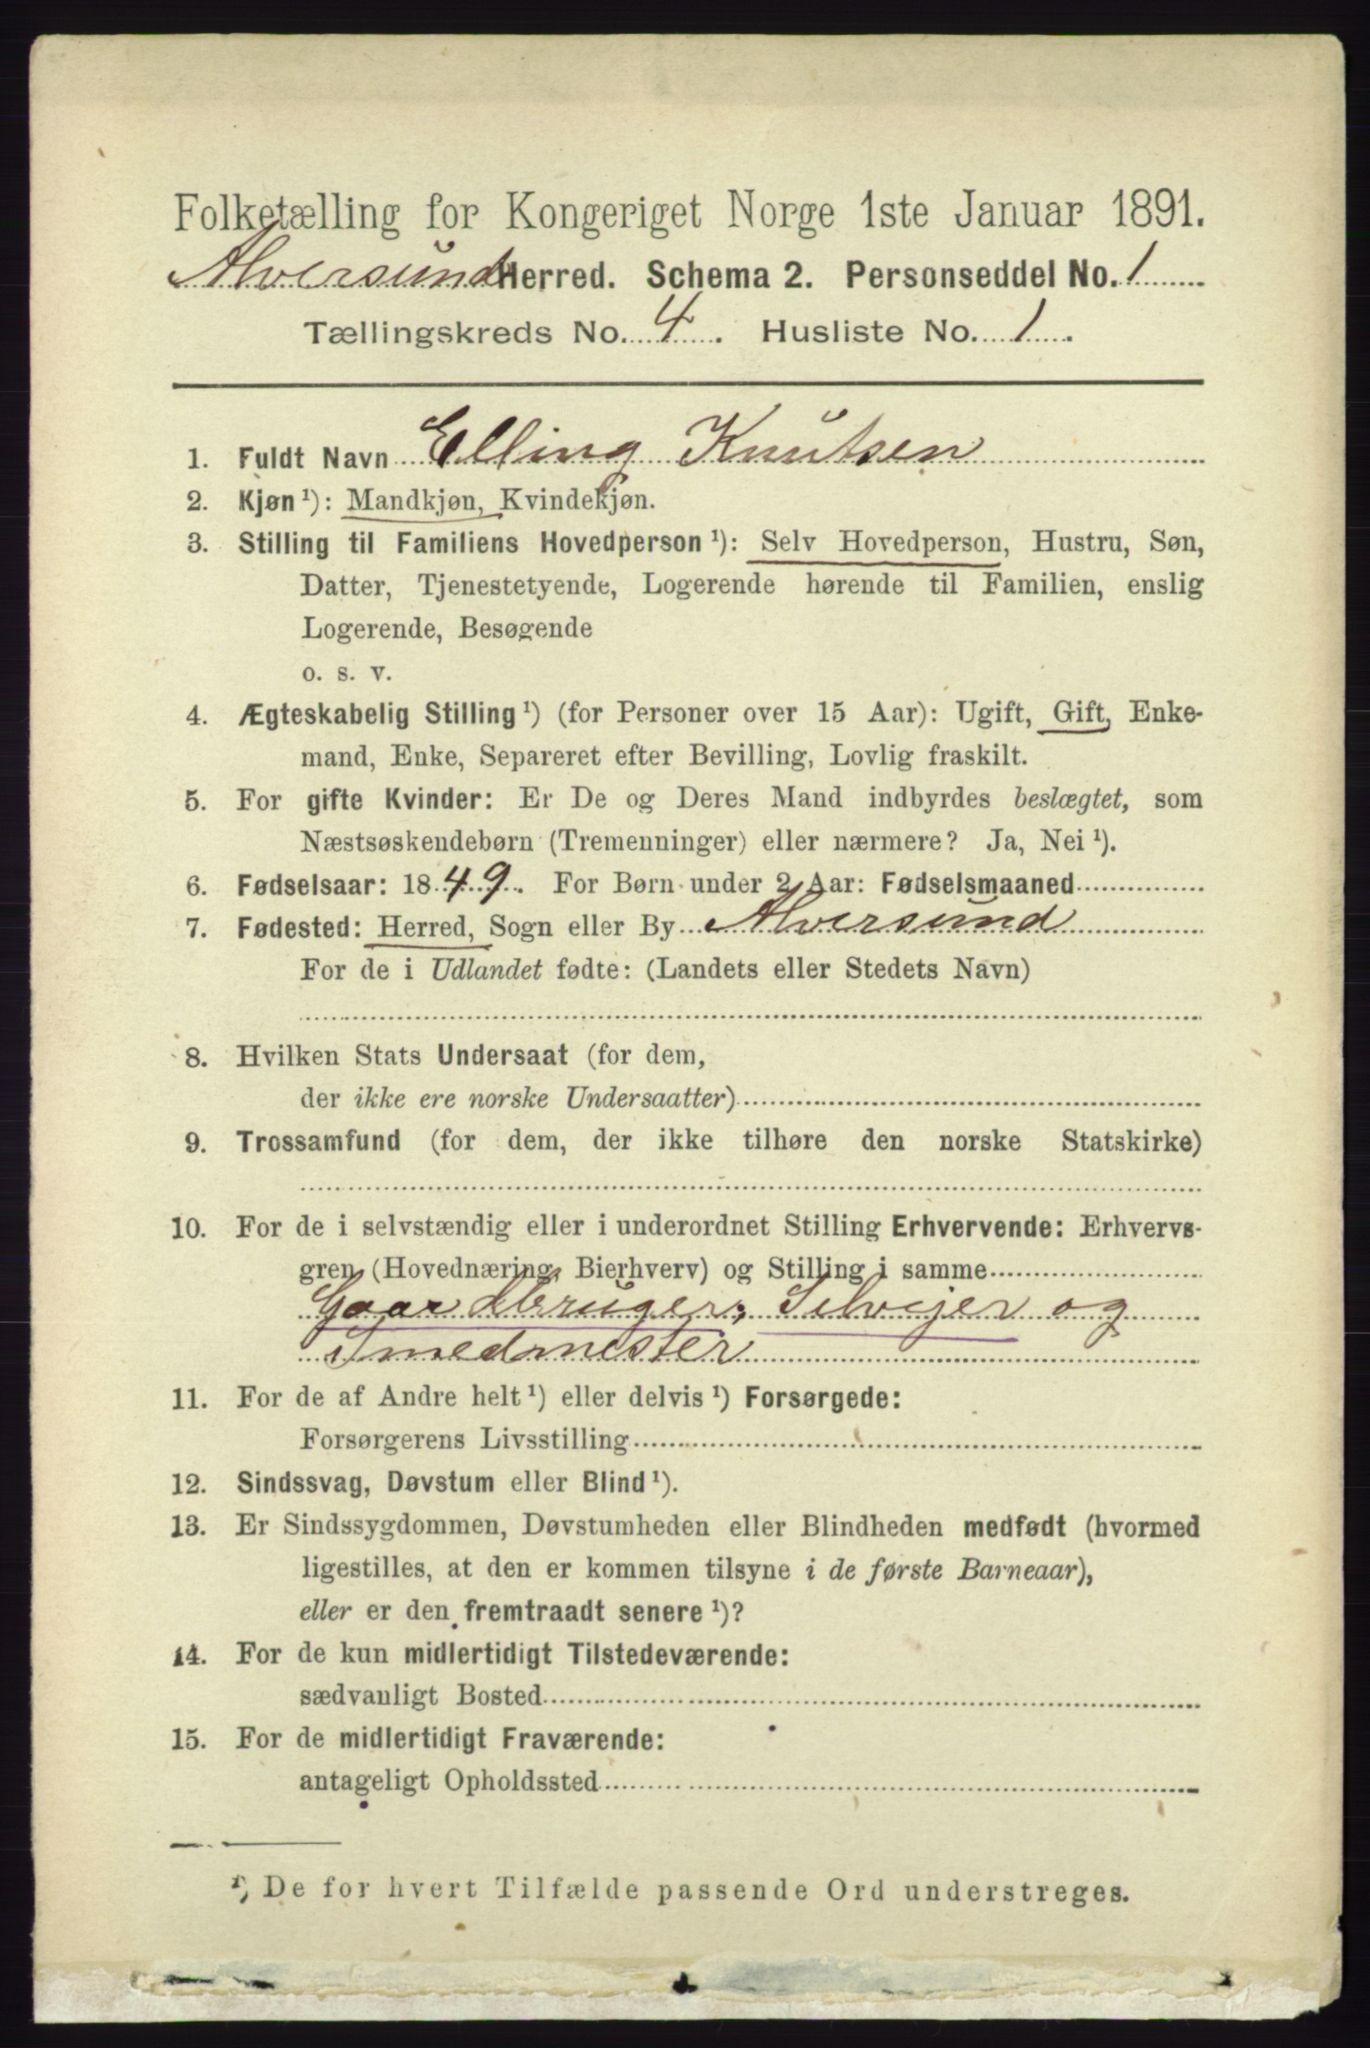 Folketælling for Kongeriget Norge 1ste Januar 1891.
Alversund Herred. Schema 2. Personseddel No. 1
Tællingskreds No. 4. Husliste No. 1.
1. Fuldt Navn Elling Knutsen
2. Kjøn ¹): Mandkjøn, Kvindekjøn.
3. Stilling til Familiens Hovedperson ¹): Selv Hovedperson, Hustru, Søn,
Datter, Tjenestetyende, Logerende hørende til Familien, enslig
Logerende, Besøgende
o. s. v.
4. Ægteskabelig Stilling ¹) (for Personer over 15 Aar): Ugift, Gift, Enke-
mand, Enke, Separeret efter Bevilling, Lovlig fraskilt.
5. For gifte Kvinder: Er De og Deres Mand indbyrdes beslægtet, som
Næstsøskendebørn (Tremenninger) eller nærmere? Ja, Nei ¹).
6. Fødselsaar: 1849. For Børn under 2 Aar: Fødselsmaaned
7. Fødested: Herred, Sogn eller By Alversund
For de i Udlandet fødte: (Landets eller Stedets Navn)
8. Hvilken Stats Undersaat (for dem,
der ikke ere norske Undersaatter)
9. Trossamfund (for dem, der ikke tilhøre den norske Statskirke)
10. For de i selvstændig eller i underordnet Stilling Erhvervende: Erhvervs-
gren (Hovednæring, Bierhverv) og Stilling i samme
Gaardbruger, Selvejer og
Smedmester
11. For de af Andre helt ¹) eller delvis ¹) Forsørgede:
Forsørgerens Livsstilling
12. Sindssvag, Døvstum eller Blind ¹).
13. Er Sindssygdommen, Døvstumheden eller Blindheden medfødt (hvormed
ligestilles, at den er kommen tilsyne i de første Barneaar),
eller er den fremtraadt senere ¹)?
14. For de kun midlertidigt Tilstedeværende:
sædvanligt Bosted
15. For de midlertidigt Fraværende:
antageligt Opholdssted
¹) De for hvert Tilfælde passende Ord understreges.